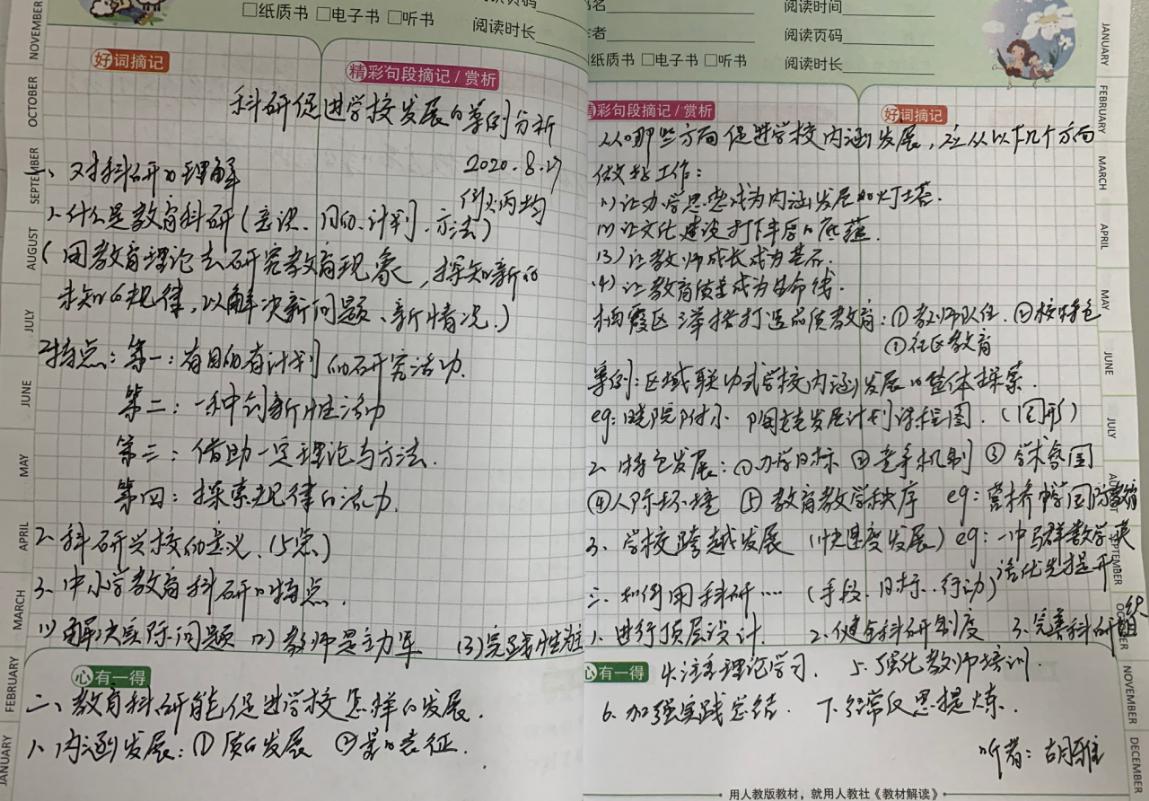 NOVEMBER
OCTOBER
SEPTEMBER
AUGUST
JULY
JUNE
MAY
APRIL
MARCH
FEBRUARY
JANUARY
□纸质书 □电子书 □听书
阅读时长
好词摘记
精彩句段摘记/赏析
科研促进学校发展的案例分析
2020.8.27
一、对科研的理解
1、什么是教育科研(意识、目的、计划、方法)
(用教育理论去研究教育现象,探知新的
未知的规律,以解决新问题、新情况。)
2特点:第一:有目的有计划的研究活动.
第二:一种创新性活动
第三:借助一定理论与方法.
第四:探索规律的活动.
2、科研兴校的意义.(5点)
3、中小学教育科研的特点.
(1)解决实际问题 (2)教师是主力军 (3)实践性为主
心有一得
二、教育科研能促进学校怎样的发展.
1、内涵发展:①质的发展 ②量的表征.
阅读时间
阅读页码
纸质书 □电子书 □听书
阅读时长
精彩句段摘记/赏析
好词摘记
从哪些方面促进学校内涵发展,应从以下几个方面
做好工作:
(1)让办学思想成为内涵发展的灯塔.
(2)让文化建设打下丰厚的底蕴.
(3)让教师成长成为基石.
(4)让教育质量成为生命线.
栖霞区举措打造品质教育:①教师队伍.②校特色
①社区教育
案例:区域联动式学校内涵发展的整体探索.
eg:晓院附小 发展计划课程图.(图形)
2、特色发展:①办学目标 ②竞争机制 ③学术氛围
④人际环境 ⑤教育教学秩序 eg:营桥中学国防教育
3、学校跨越发展(快速度发展)eg:一中马群数学英
语优先提升
三、如何用科研……(手段、目标..行动)
1、进行顶层设计. 2、健全科研制度 3、完善科研组织
心有一得
4、注重理论学习. 5、强化教师培训.
6、加强实践总结. 7、经常反思提炼.
听者:胡雅
用人教版教材,就用人教社《教材解读》
JANUARY
FEBRUARY
MARCH
APRIL
MAY
JUNE
JULY
SEPTEMBER
NOVEMBER
DECEMBER